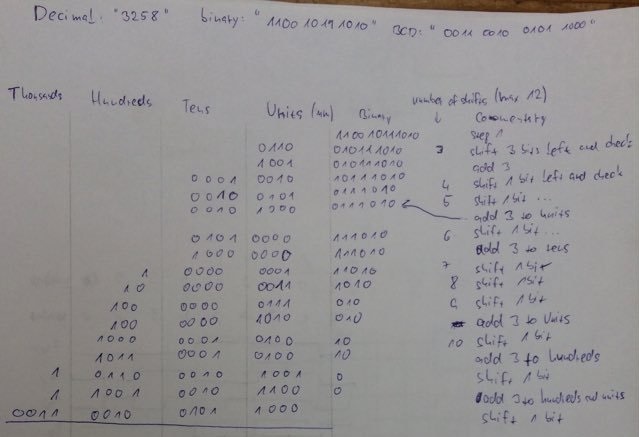 Decimal: "3258" binary: "1100 1011 1010" BCD: "0011 0010 0101 1000"
Thousands Hundreds Tens Units Binary number of shifts (max 12)
Commentary
110010111010 step 1
0110 010111010 3 shift 3 bits left and check
1001 010111010 add 3
0001 0010 10111010 4 shift 1 bit left and check
0010 0101 0111010 5 shift 1 bit ...
0010 1000 0111010 add 3 to units
0101 0000 111010 6 shift 1 bit ...
1000 0000 111010 add 3 to tens
1 0000 0001 11010 7 shift 1 bit
10 0000 0011 1010 8 shift 1 bit
100 0000 0111 010 9 shift 1 bit
100 0000 1010 010 add 3 to Units
1000 0001 0100 10 10 shift 1 bit
1011 0001 0100 10 add 3 to hundreds
1 0110 0010 1001 0 shift 1 bit
1 1001 0010 1100 0 add 3 to hundreds and units
0011 0010 0101 1000 shift 1 bit